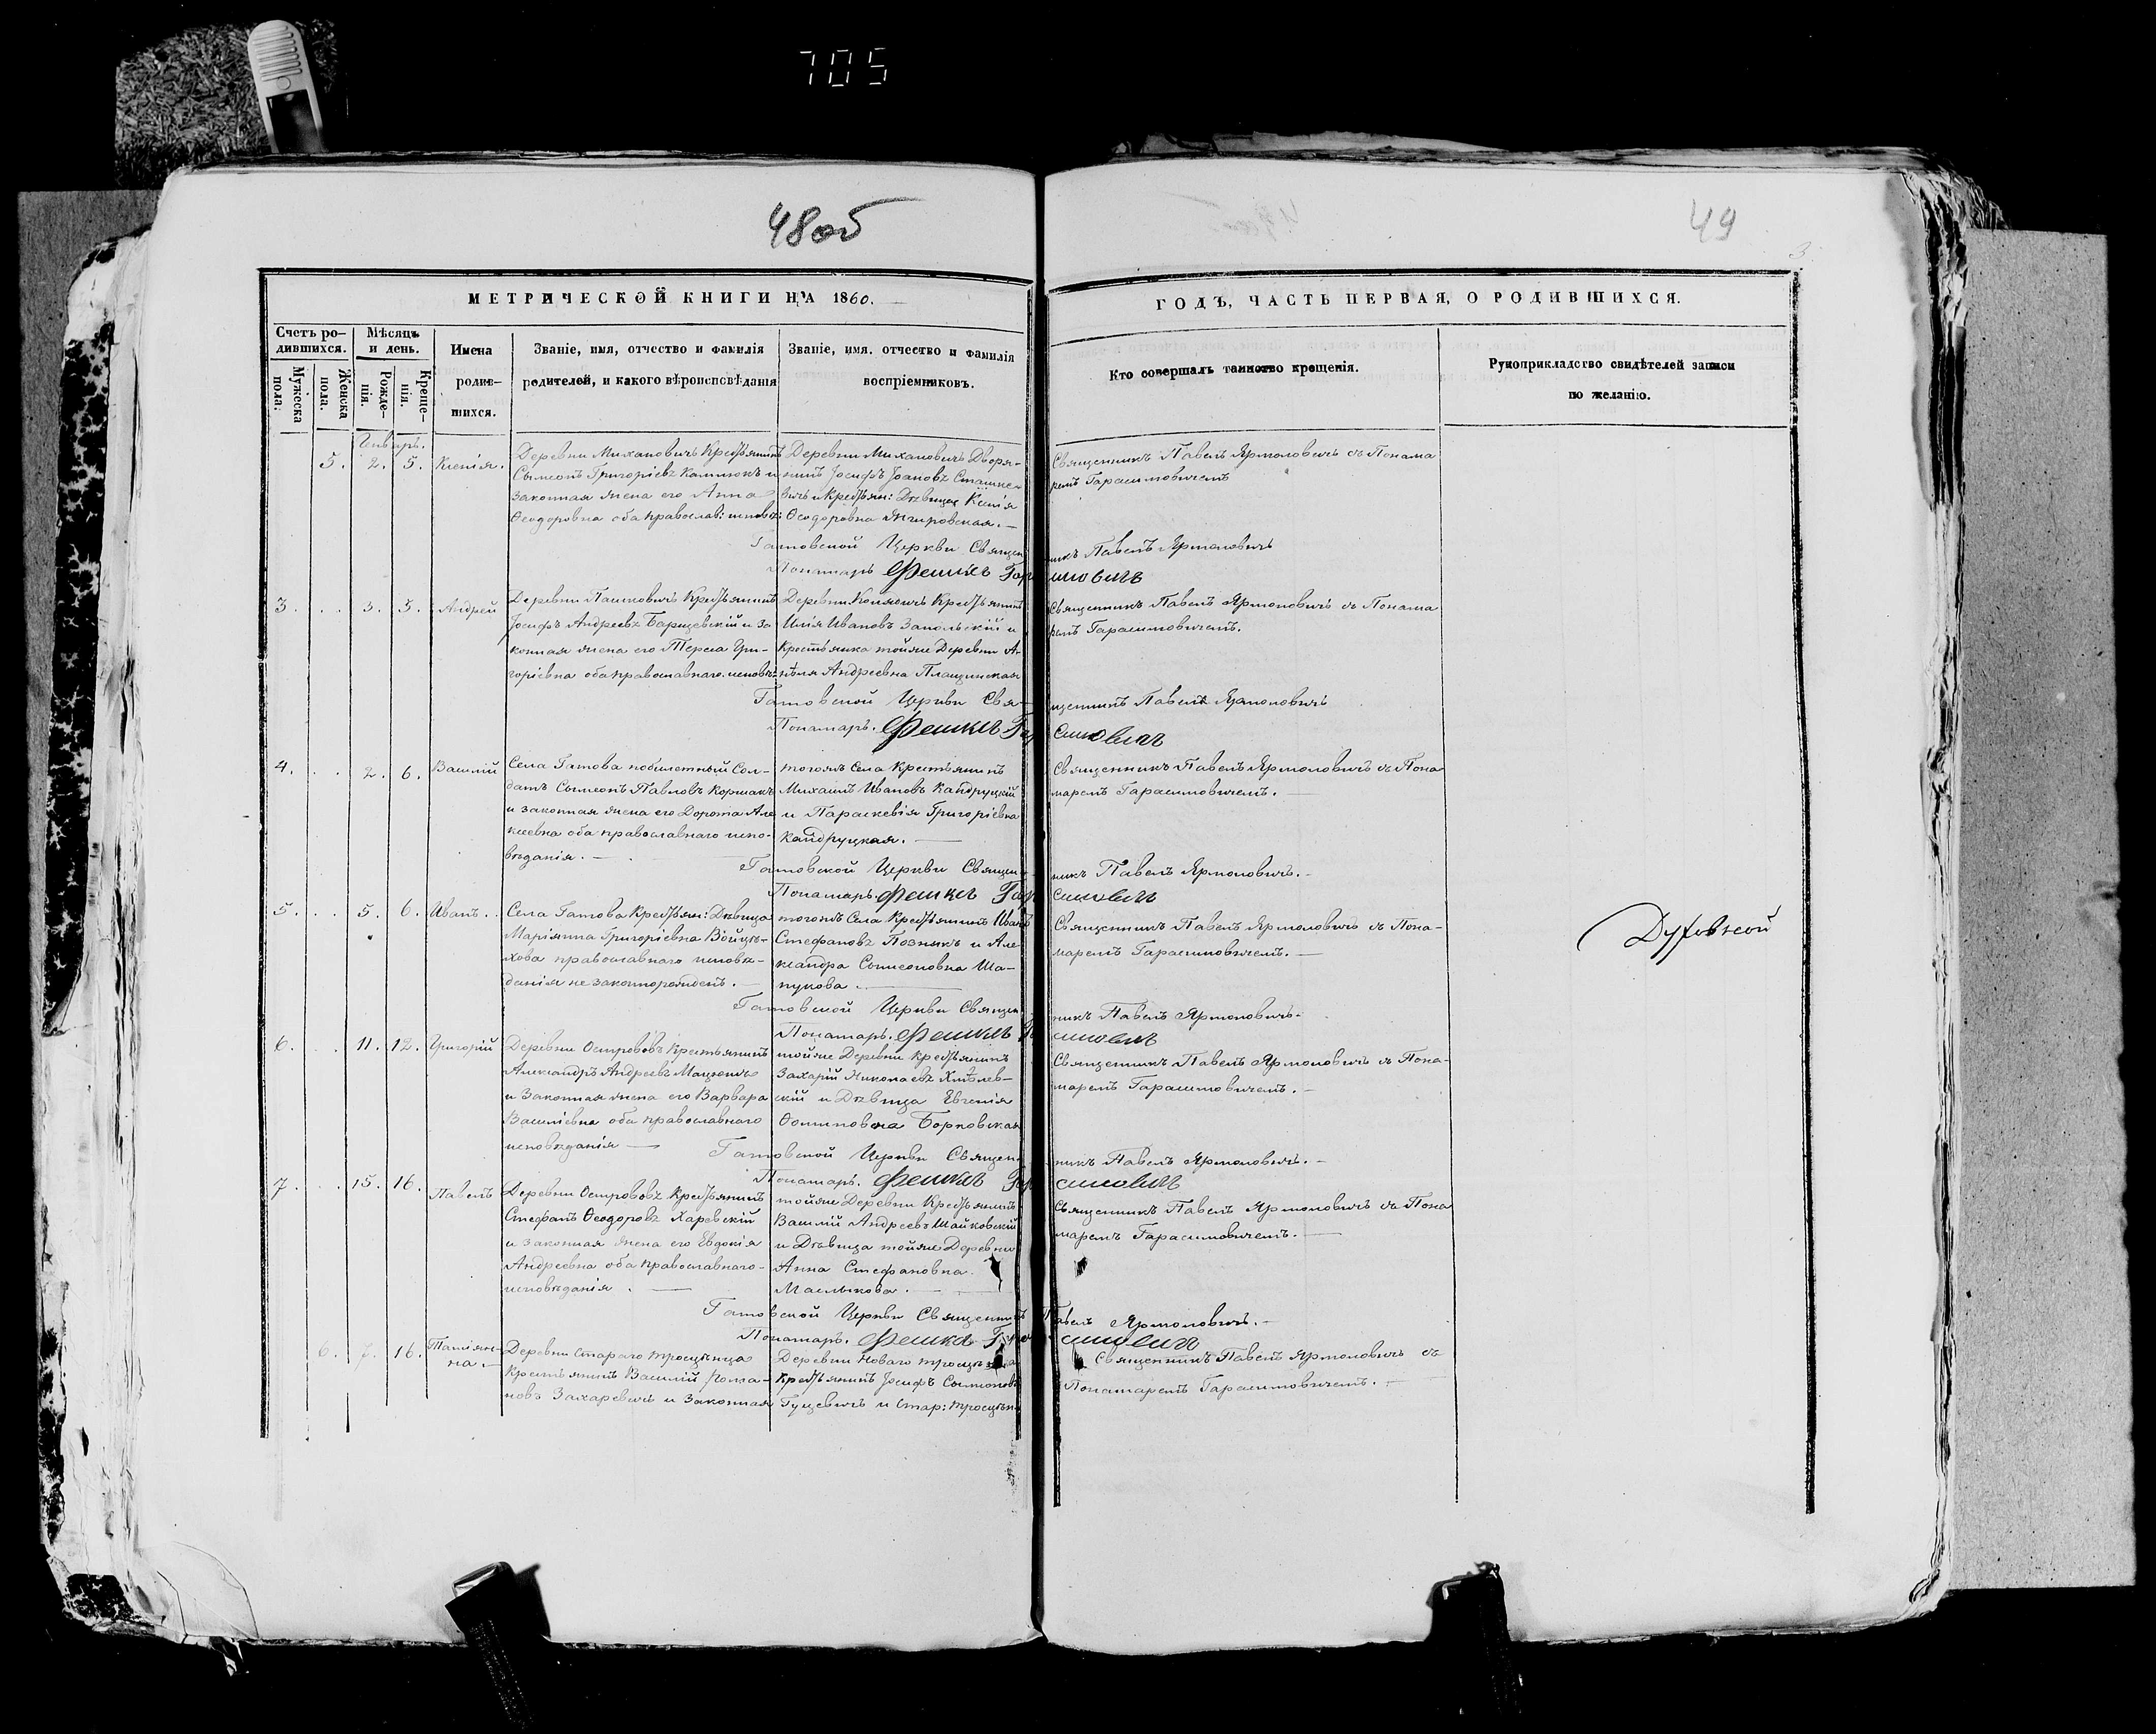 705
48об
49
3.
МЕТРИЧЕСКОЙ КНИГИ НА 1860.
ГОДЪ, ЧАСТЬ ПЕРВАЯ, О РОДИВШИХСЯ.
Счетъ ро-
дившихся.
Мѣсяцъ
и день.
Мужеска
пола.
Женска
пола.
Рожде-
нія.
Креще-
нія.
Имена
родив-
шихся.
Званіе, имя, отчество и фамилія
родителей, и какого вѣроисповѣданія
Званіе, имя. отчество и фамилія
воспріемниковъ.
Кто совершалъ таинство крещенія.
Рукоприкладство свидѣтелей записи
по желанію.
Январь.
5. 2. 5. Ксенія.
Деревни Михановичъ Крестьянинъ
Сымеонъ Григоріевъ Калинокъ и
законная жена его Анна
Ѳеодоровна оба православ: исповѣ:
Деревни Михановичъ Дворя-
нинъ Іосифъ Іоановъ Сташке-
вичъ и Крестьян: Дѣвица Ксенія
Ѳеодоровна
Священникъ Павелъ Ярмоловичъ съ Понама
ремъ Гарасимовичемъ
Гатовской Церкви Священникъ Павелъ Ярмоловичъ
Понамарь Феликсъ Гарасимовичъ
3. . . 3. 5. Андрей
Деревни Пашковичъ Крестьянинъ
Іосифъ Андреевъ Барщевскій и за-
конная жена его Тереса Гри-
горіевна оба православнаго исповѣ:
Деревни Крестьянинъ
Илія Ивановъ Запольскій и
Крестьянка тойже Деревни А-
нѣля Андреевна Плащинская
Священникъ Павелъ Ярмоловичъ съ Понама
ремъ Гарасимовичемъ.
Гатовской Церкви Священникъ Павелъ Ярмоловичъ
Понамарь. Феликсъ Гарасимовичъ
4. . . 2. 6. Василій
Села Гатова побилетный Сол-
датъ Сымеонъ Павловъ Коршакъ
и законная жена его Дорота Але
ксеевна оба православнаго испо-
вѣданія.
тогожъ Села Крестьянинъ
Михаилъ Ивановъ Кайдруцкій
и Параскевія Григоріевна
Кайдруцкая.
Священникъ Павелъ Ярмоловичъ съ Пона
маремъ Гарасимовичемъ.
Гатовской Церкви Священникъ Павелъ Ярмоловичъ.
Понамарь Феликсъ Гарасимовичъ
5. . . 5. 6. Иванъ.
Села Гатова Крестьян: Дѣвица
Маріянна Григоріевна Войцѣ-
хова православнаго исповѣ-
данія не законнорожденъ.
тогожъ Села Крестьянинъ Иванъ
Стефановъ Познякъ и Але-
ксандра Сымеоновна Ша-
пукова.
Священникъ Павелъ Ярмоловичъ съ Пона-
маремъ Гарасимовичемъ.
Духовной
Гатовской Церкви Священникъ Павелъ Ярмоловичъ.
Понамарь. Феликсъ Гарасимовичъ
6. . . 11. 12. Григорій
Деревни Остревовъ Крестьянинъ
Александръ Андреевъ Мацюкъ
и законная жена его Варвара
Василіевна оба православнаго
исповѣданія
тойже Деревни Крестьянинъ
Захарій Николаевъ Хмѣлев-
скій и Дѣвица Евгенія
Осиповна Борковская
Священникъ Павелъ Ярмоловичъ съ Пона-
маремъ Гарасимовичемъ.
Гатовской Церкви Священникъ Павелъ Ярмоловичъ.
Понамарь. Феликсъ Гарасимовичъ
7. . . 15. 16. Павелъ
Деревни Остррововъ Крестьянинъ
Стефанъ Ѳеодоровъ Харевскій
и законная жена его Евдокія
Андреевна оба православнаго
исповѣданія.
тойже Деревни Крестьянинъ
Василій Андреевъ Шайковскій
и Дѣвица тойже Деревни
Анна Стефановна
Маслыкова.
Священникъ Павелъ Ярмоловичъ съ Пона
маремъ Гарасимовичемъ.
Гатовской Церкви Священникъ Павелъ Ярмоловичъ.
Понамарь. Феликсъ Гарасимовичъ
6. 7. 16. Татіян-
на.
Деревни Стараго Тросцѣнца
Крестьянинъ Василій Рома-
новъ Захаревичъ и Законная
Деревни Новаго Тросцѣнца
Крестьянинъ Іосифъ Сымоновъ
Гуцевичъ и Стар: Тросцѣн
Священникъ Павелъ Ярмоловичъ съ
Понамаремъ Гарасимовичемъ.